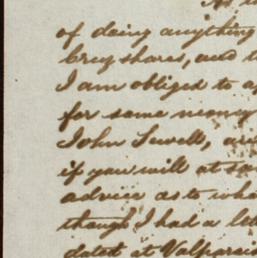 of doing anything
shares, and
I am obliged to
for some money
John Sewell,
if you will at
advice as to
though I had a
dated at Valparaiso